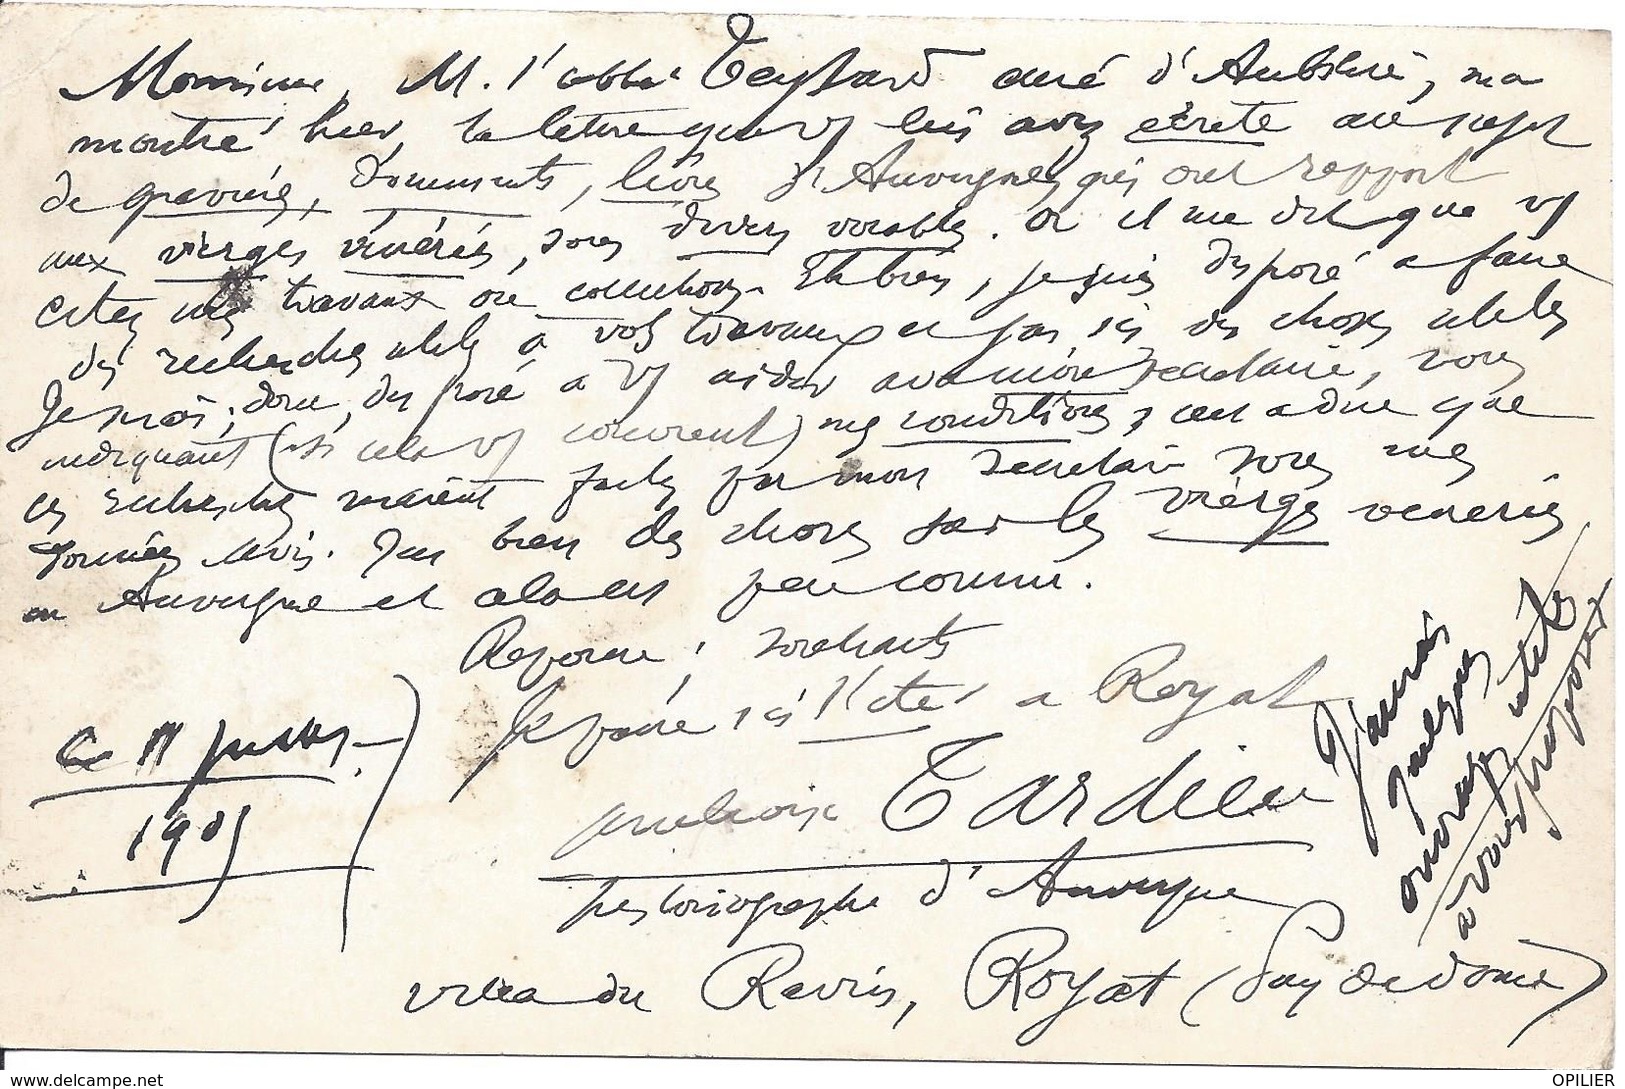 Monsieur, M. l'abbé Teytard curé d'Aubière, m'a
montré hier, la lettre que vs lui avez écrite au sujet
de gravures, documents, livres d'Auvergne qui ont rapport
aux vierges vénérées, sous divers vocables. Or il me dit que vs
citez mes travaux ou collections. Eh bien, je suis disposé à faire
des recherches utiles à vos travaux et j'ai ici des choses utiles
Je suis, donc, disposé à vs aider avec mon secrétaire, vous
indiquant (si cela vs convient) mes conditions, c'est à dire que
ces recherches seraient faites par mon secrétaire sous mes
yeux. J'ai bien des choses sur les vierges vénérées
en Auvergne et cela est peu connu.
Réponse, souhaits
Je passe ici l'été à Royat
Ambroise Tardieu
historiographe d'Auvergne
villa du Ravin, Royat (Puy de Dôme)
Ce 11 juillet
1905
J'aurais
quelques
ouvrages utiles
à vous proposer